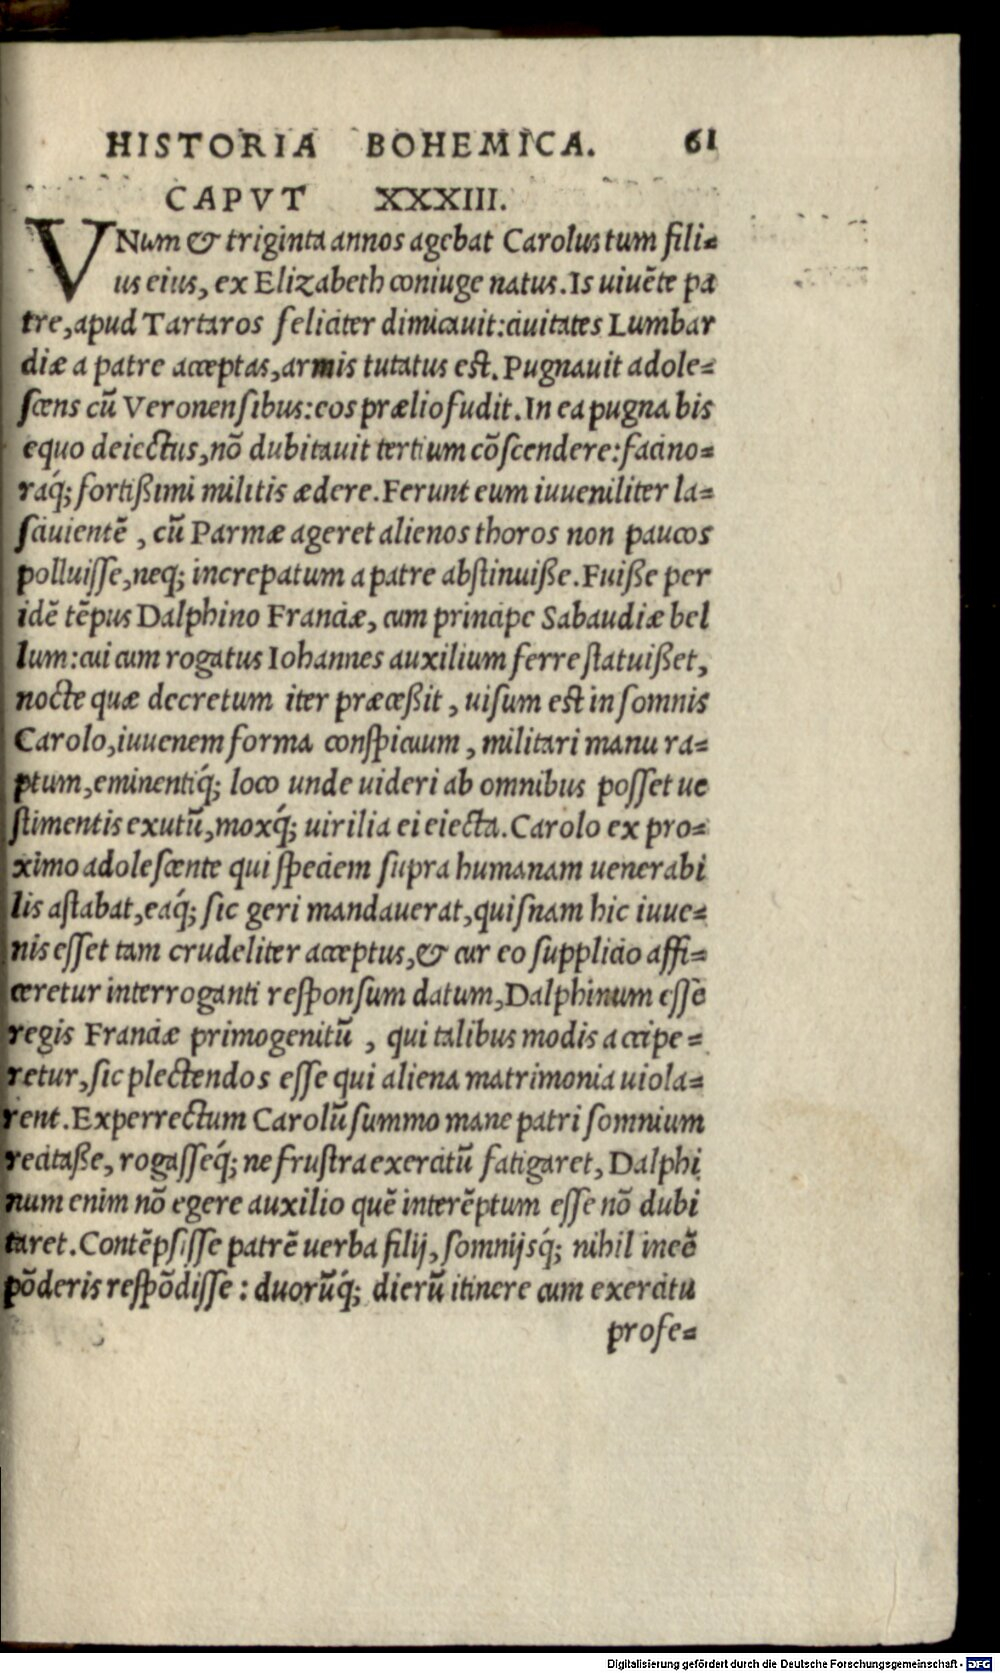 HISTORIA BOHEMICA. 61
CAPVT XXXIII.
VNum & triginta annos agebat Carolus tum fili=
us eius, ex Elizabeth coniuge natus. Is uiuẽte pa
tre, apud Tartaros feliciter dimicauit: ciuitates Lumbar
diæ a patre acceptas, armis tutatus est. Pugnauit adole=
scens cũ Veronensibus: eos prælio fudit. In ea pugna bis
equo deiectus, nõ dubitauit tertium cõscendere: facino=
raq́; fortißimi militis ædere. Ferunt eum iuueniliter la=
sciuientẽ, cũ Parmæ ageret alienos thoros non paucos
polluisse, neq; increpatum a patre abstinuiße. Fuiße per
idẽ tẽpus Dalphino Franciæ, cum principe Sabaudiæ bel
lum: cui cum rogatus Iohannes auxilium ferre statuißet,
nocte quæ decretum iter præceßit, uisum est in somnis
Carolo, iuuenem forma conspicuum, militari manu ra=
ptum, eminentiq́; loco unde uideri ab omnibus posset ue
stimentis exutũ, moxq́; uirilia ei eiecta. Carolo ex pro=
ximo adolescente qui speciem supra humanam uenerabi
lis astabat, eaq́; sic geri mandauerat, quisnam hic iuue=
nis esset tam crudeliter acceptus, & cur eo supplicio affi=
ceretur interroganti responsum datum, Dalphinum esse
regis Franciæ primogenitũ, qui talibus modis accipe=
retur, sic plectendos esse qui aliena matrimonia uiola=
rent. Experrectum Carolũ summo mane patri somnium
recitaße, rogasseq́; ne frustra exercitũ fatigaret, Dalphi
num enim nõ egere auxilio quẽ interẽptum esse nõ dubi
taret. Contẽpsisse patrẽ uerba filij, somnijsq́; nihil ineẽ
põderis respõdisse: duorũq́; dierũ itinere cum exercitu
profe=
Digitalisierung gefördert durch die Deutsche Forschungsgemeinschaft - DFG